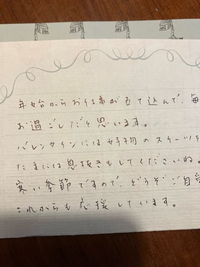 年始からお仕事が立て込んで、毎
お過ごしだと思います。
バレンタインには好物のスイーツを
たまには息抜きもしてくださいね。
寒い季節ですので、どうぞご自
これからも応援しています。